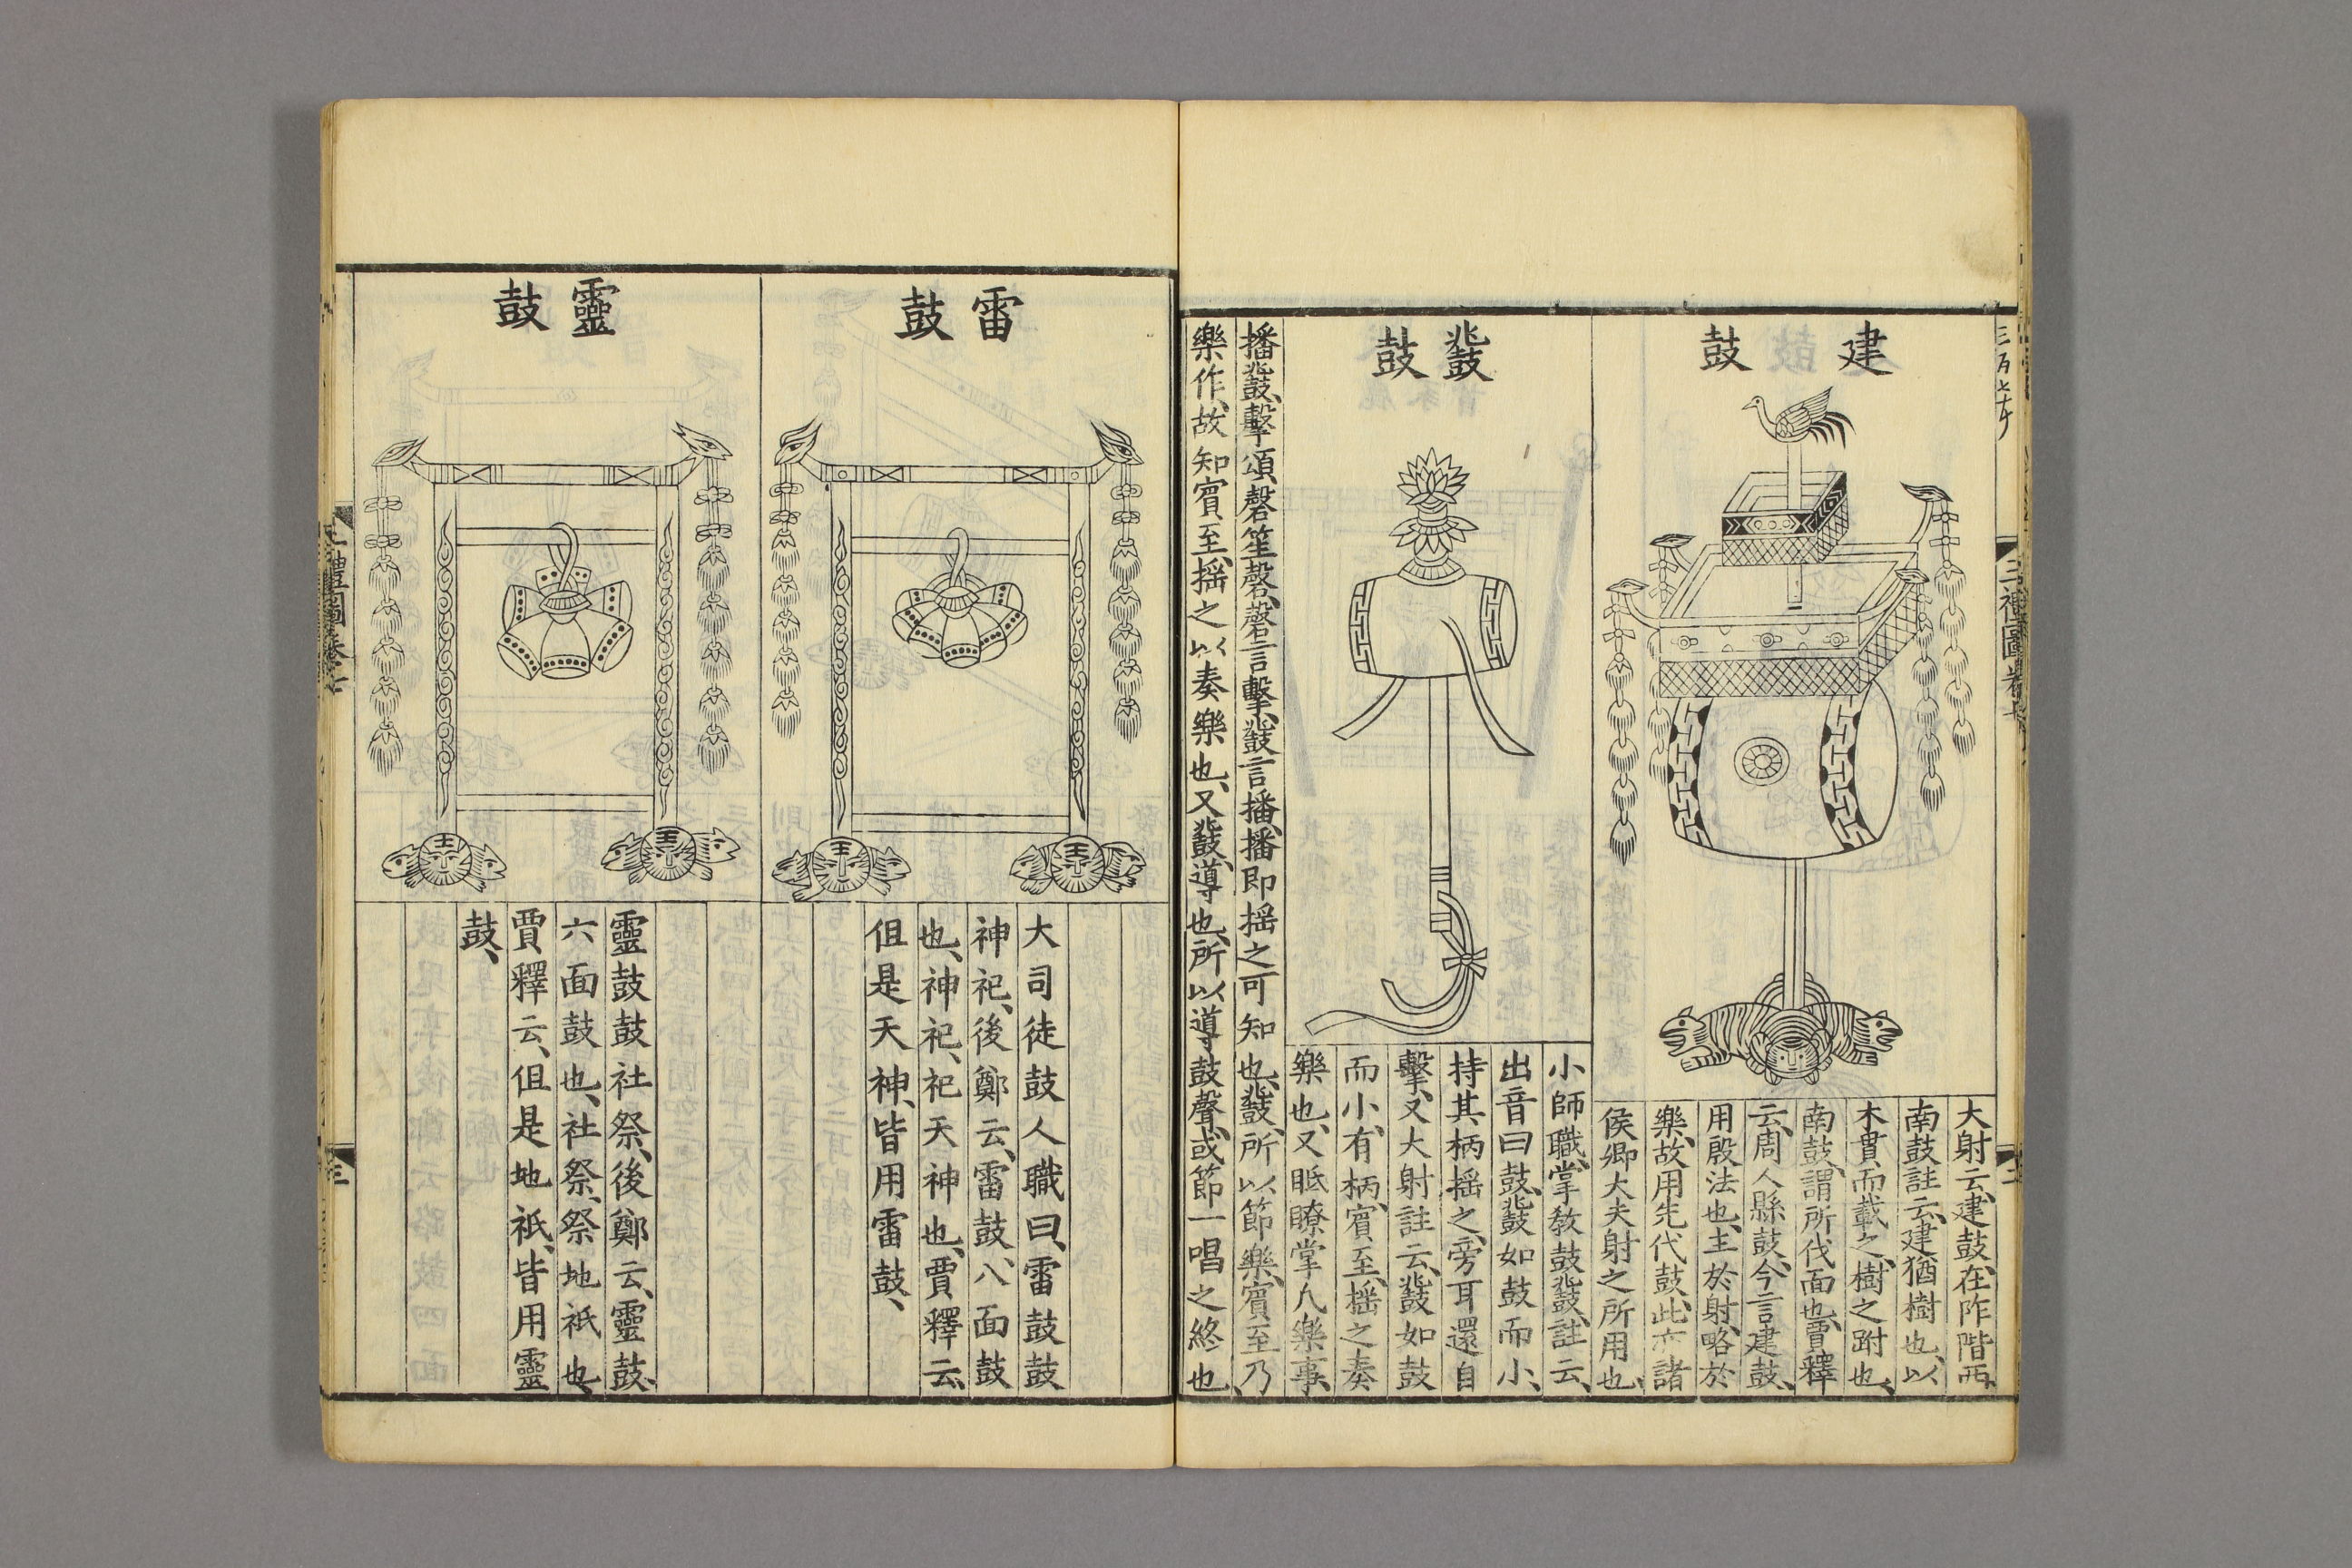 三禮圖卷七
二
建鼓
大射云、建鼓、在阼階西、
南鼓、註云、建猶樹也、以
木貫而載之、樹之跗也、
南鼓、謂所伐面也、賈釋
云、周人縣鼓、今言建鼓、
用殷法也、主於射、略於
樂、故用先代鼓、此亦諸
侯卿大夫射之所用也、
鼗鼓
小師職、掌教鼓鼗、註云、
出音曰鼓、鼗如鼓而小、
持其柄揺之、旁耳還自
擊、又大射註云、鼗如鼓
而小、有柄、賓至、揺之奏
樂也、又眡瞭掌凡樂事、
播鼗、擊頌磬笙磬、磬言擊、鼗言播、播即揺之可知也、鼗、所以節樂、賓至乃
樂作、故知賓至、揺之以奏樂也、又鼗、導也、所以導鼓聲、或節一唱之終也、
雷鼓
大司徒鼓人職曰、雷鼓鼓
神祀、後鄭云、雷鼓、八面鼓
也、神祀、祀天神也、賈釋云、
但是天神、皆用雷鼓、
靈鼓
靈鼓鼓社祭、後鄭云、靈鼓、
六面鼓也、社祭、祭地祇也、
賈釋云、但是地祇、皆用靈
鼓、
三禮圖卷七
三